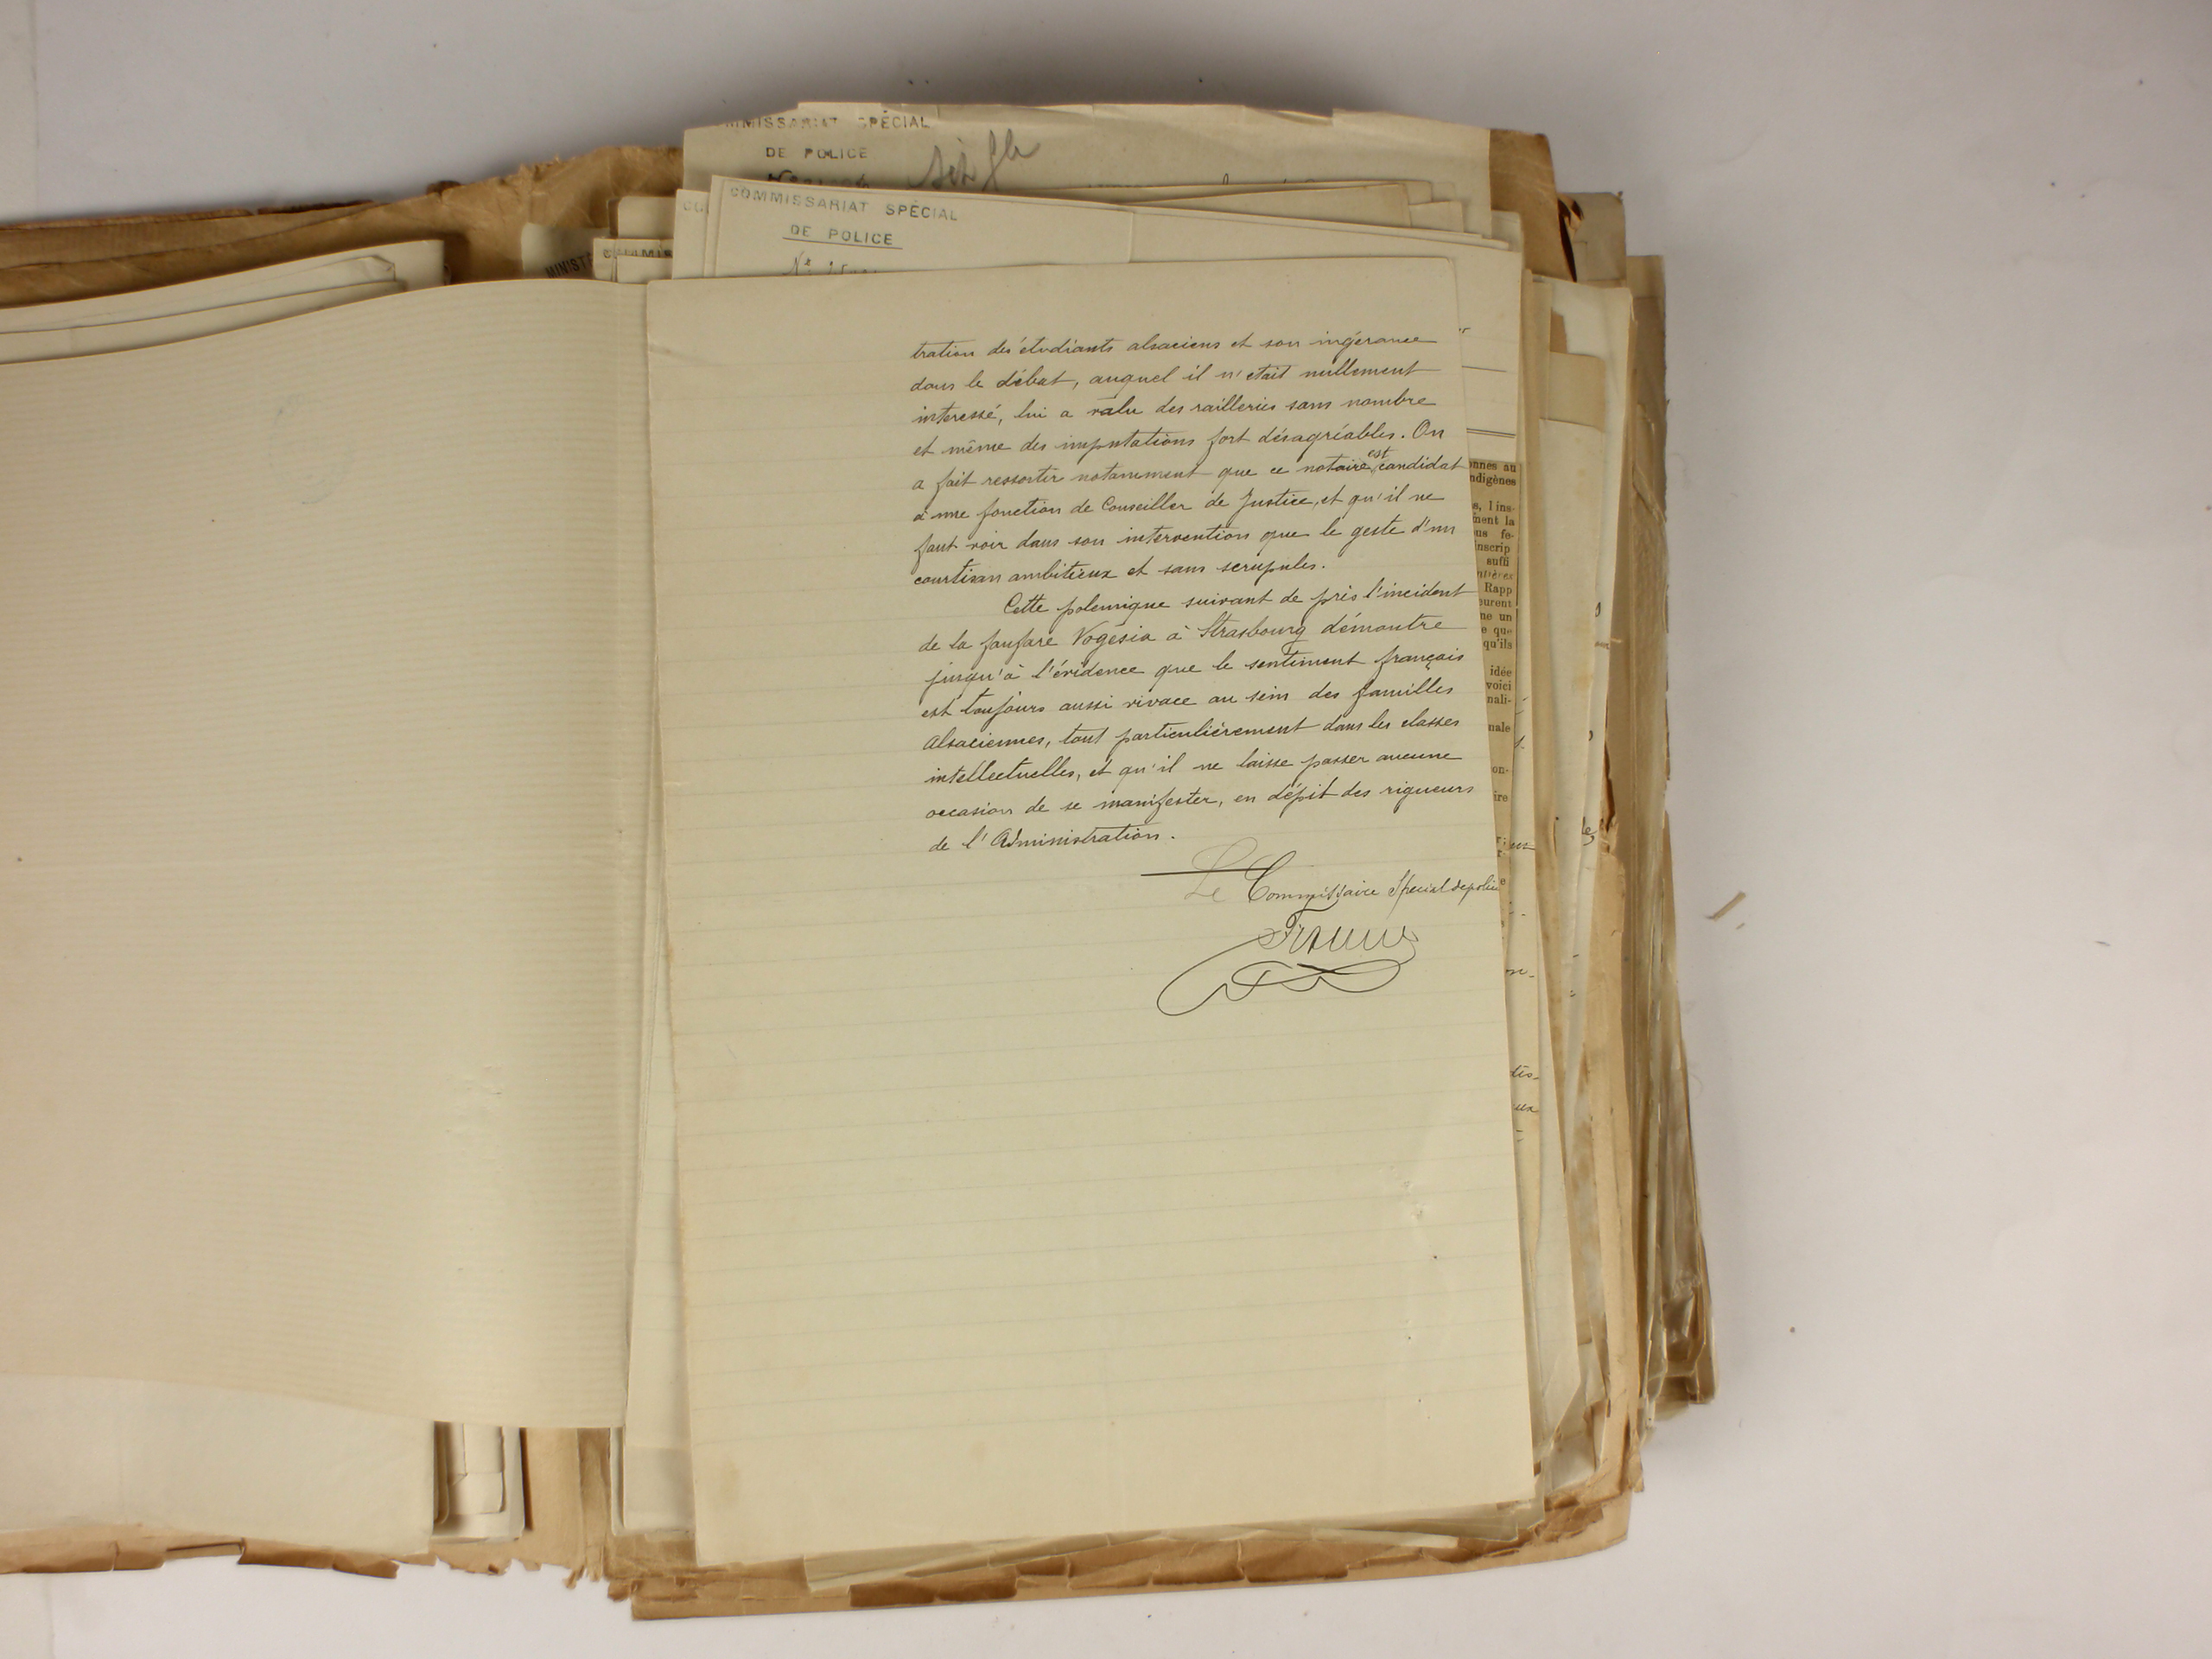 COMMISSARIAT SPÉCIAL
DE POLICE
COMMISSARIAT SPÉCIAL
DE POLICE
tration des étudiants alsaciens et son ingérance
dans le débat, auquel il n'etait nullement
interessé, lui a valu des railleries sans nombre
et même des imputations fort désagréables. On
a fait ressortir notamment que ce notaire est candidat
à une fonction de Conseiller de Justice, et qu'il ne
faut voir dans son intervention que le geste d'un
courtisan ambitieux et sans scrupules.
Cette polemique suivant de près l'incident
de la fanfare Vogésia à Strasbourg démontre
jusqu'à l'évidence que le sentiment français
est toujours aussi vivace au sein des familles
Alsaciennes, tout particulièrement dans les classes
intellectuelles, et qu'il ne laisse passer aucune
occasion de se manifester, en dépit des rigueurs
de l'Administration.
Le Commissaire Special de police
onnes au
ndigènes
s, l'ins-
ment la
us fe-
inscrip
suffi
Rapp
eurent
ne un
e que
qu'ils
idée
voici
nali-
nale
on-
ire